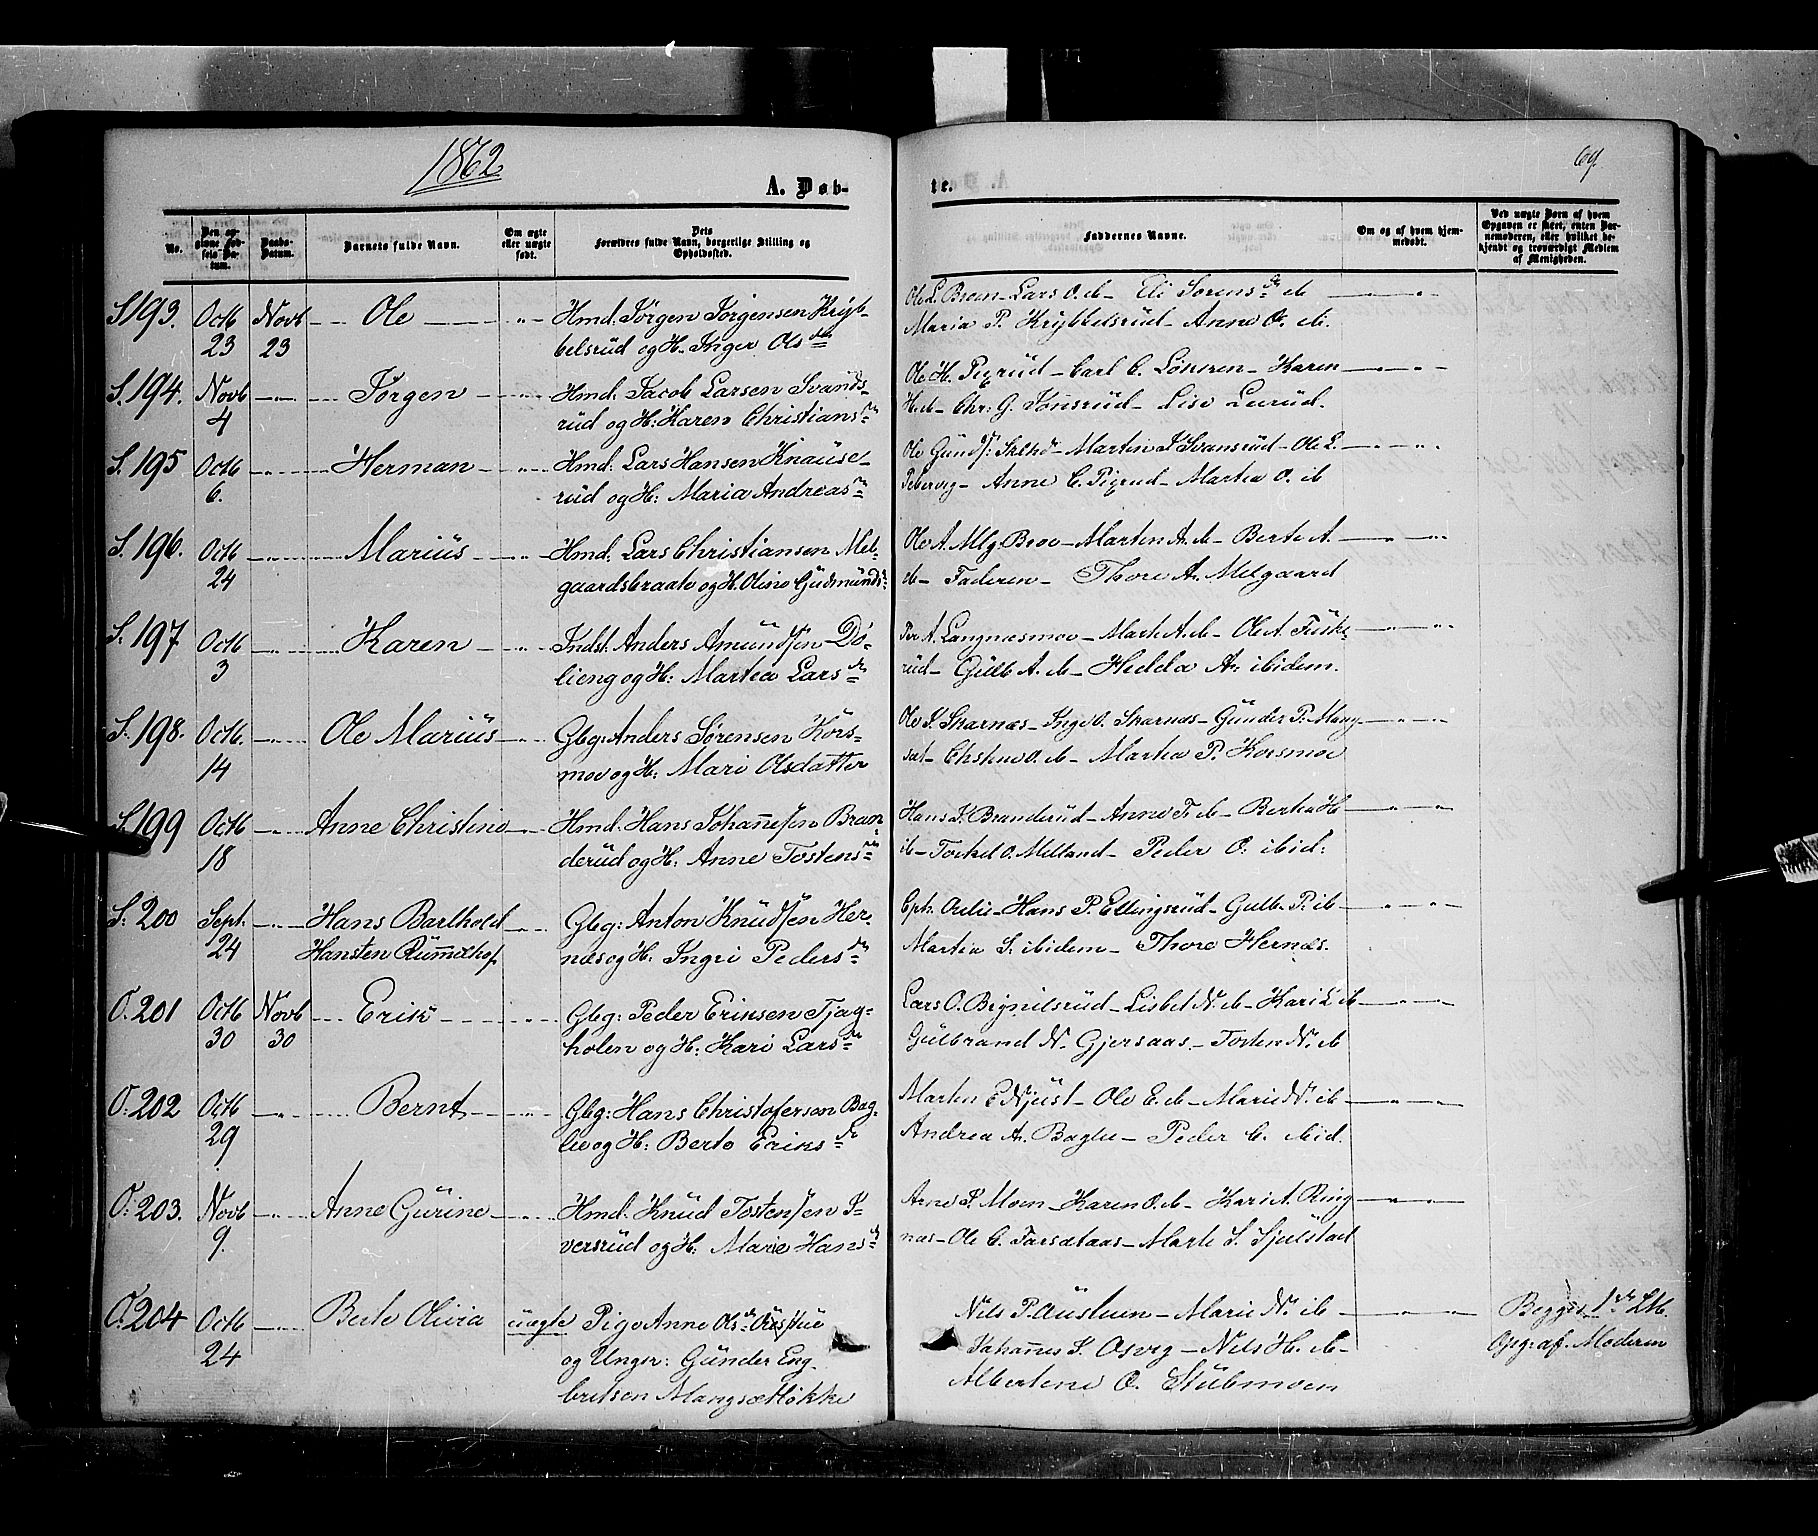 1862
A. Døb-
te.
69.
No.
Den op-
givne Fød-
sels Da-
tum.
Daabs-
Datum.
Barnets fulde Navn.
Om ægte
eller uægte
født.
Dets
Forældres fulde Navn, borgerlige Stilling og
Opholdssted.
Faddernes Navne.
Om og af hvem hjem-
medøbt.
Ved uægte Børn af hvem
Opgaven er skeet, enten Bar-
nemoderen, eller hvilket be-
kjendt og troværdigt Medlem
af Menigheden.
S. 193. Octb 23 Novb 23 Ole
Hmd. Jørgen Jørgensen Kryb-
belsrud og H. Inger Olsdr
Ole L. Broen - Lars O. ib - Eli Sørensdr ib
Maria P. Krybbelsrud - Anne O. ib.
S. 194. Novb 4 Jørgen
Hmd. Jacob Larsen Svands-
rud og H: Karen Christiansdr
Ole H. Pigrud - Carl C. - Karen
H. ib - Chr: G. Tønsrud - Lise Lerud.
S. 195 Octb 6. Herman
Hmd: Lars Hansen Knause-
rud og H: Maria Andreasdr
Ole - Martin J Svansrud - Ole L.
Pebervig - Anne C. Pigrud - Martea O. ib
S. 196. Octb 24 Marius
Hmd: Lars Christiansen Mel-
gaardsbraate og H. Oline Gudmundsdr
Ole A. Mlg. Broe - Marten A. ib - Berte A.
ib - Faderen - Thore A. Melgaard
S. 197 Octb 3 Karen
Indst. Anders Amundsen Dø-
lieng og H: Martea Larsdr
Per A. Langnæsmoe - Marte A. ib - Ole A. Fusk-
rud - Gulb A. ib - Hedda A. ibidem.
S. 198. Octb. 14 Ole Marius
Gbg: Anders Sørensen Kors-
moe og H: Mari Olsdatter
Ole S. Skarnæs - Inge O. Skarnæs - Gunder P. Mang-
sæt - O. ib - Martea P. Korsmoe
S. 199 Octb 18 Anne Christine
Hmd: Hans Johannesen Bran-
derud og H: Anne Tostensdr
Hans J. Branderud - Anne T. ib - Bertea H
ib - Torkel O. Melland - Peder O. ibid:
S. 200 Sept. 24 Hans Barthold
Hansten Rummelhof
Gbg: Anton Knudsen Her-
næs og H. Ingri Pedersdr
Cpt. - Hans P. Ellingsrud - Gulb. P. ib
Martea S. ibidem - Thore Hernæs.
O. 201 Octb 30 Novb 30 Erik
Gbg: Peder Eriksen Tjag-
holen og H: Kari Larsdr
Lars O. Brynilsrud - Lisbet N. ib - Kari L ib
Gulbrand N. Gjersaas - Torsten N. ib
O. 202 Octb 29 Bernt
Gbg: Hans Christofersen Bag-
lie og H: Berte Eriksdr
Marten E - Ole E. ib - Marie N. ib -
Andrea A. Baglie - Peder C. ibid.
O. 203. Novb 9. Anne Gurine
Hmd. Knud Tostensen I-
versrud og H: Marie Hansdr
Arne P. Moen - Karen O. ib - Kari A. Ring-
næs - Ole C. Farsætaas - Marte S. Sjulstad
O. 204 Octb 24 Berte Olivia uægte
Pige Anne Olsdr
og Ungkr: Gunder Eng-
bretsen Mangsætløkke
Nils P. Austuen - Marie N. ib
Johannes J. Osvig - Nils H. ib -
Albertine O. Stubmoen
Begges 1ste Ltb.
Opg. af. Moderen